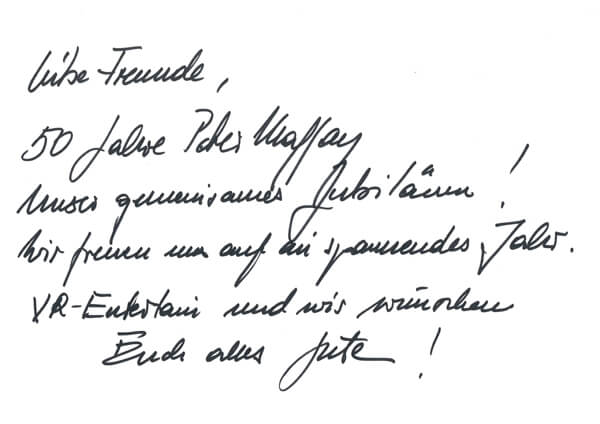 Liebe Freunde,
50 Jahre Peter Maffay
unser gemeinsames Jubiläum!
Wir freuen uns auf ein spannendes Jahr.
VR-Entertain und wir wünschen
Euch alles Gute!